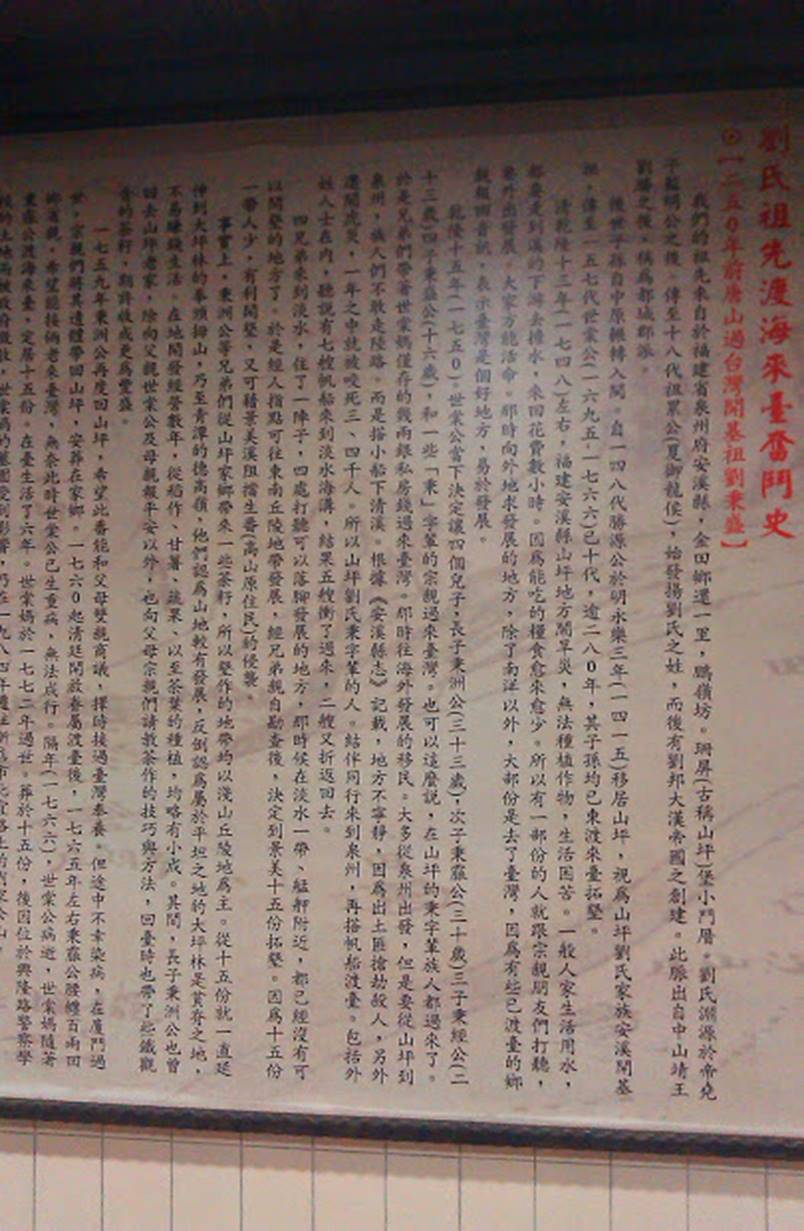 劉氏祖先渡海來臺奮鬥史
⊙【二五0年前唐山過台灣開基祖劉秉盛】
我們的祖先來自於福建省泉州府安溪縣，金田鄉還一里，鵬嶺坊。珊屏(古稱山坪)堡小門厝。劉氏淵源於帝堯
子監明公之後。傳至十八代祖累公(夏御龍侯)，始發揚劉氏之姓，而後有劉邦大漢帝國之創建。此脈出自中山靖王
劉勝之後，稱為彭城郡派。
後世子孫自中原輾轉入閩。自一四八代勝源公於明永樂三年(一四一五)移居山坪，視為山坪劉氏家族安溪開基
祖，傳至一五七代世業公(一六九五-一七六六)已十代，逾二八0年，其子孫均已東渡來臺拓墾。
清乾隆十三年(一七四八)左右，福建安溪縣山坪地方鬧旱災，無法種植作物，生活困苦。一般人家生活用水，
都要走到溪的下游去擔水，來回花費數小時。因為能吃的糧食愈來愈少。所以有一部份的人就跟宗親朋友們打聽，
要外出發展，大家方能活命。那時向外地求發展的地方，除了南洋以外，大部份是去了臺灣，因為有些已渡臺的鄉
親報回音訊，表示臺灣是個好地方，易於發展。
乾隆十五年(一七五0)。世業公當下決定讓四個兒子，長子秉洲公(三十三歲)，次子秉霖公(三十歲)三子秉經公(二
十三歲)四子秉盛公(十六歲)，和一些「秉」字輩的宗親過來臺灣。也可以這麼說，在山坪的秉字輩族人都過來了。
於是兄弟們帶著世業媽僅存的幾兩銀私房錢過來臺灣。那時往海外發展的移民。大多從泉州出發，但是要從山坪到
泉州，族人們不敢走陸路。而是搭小船下清溪。根據《安溪縣志》記載，地方不寧靜，因為出土匪搶劫殺人，另外
還鬧虎災，一年之中就被咬死三、四千人。所以山坪劉氏秉字輩的人。結伴同行來到泉州，再搭帆船渡臺。包括外
姓人士在內，聽說有七艘帆船來到淡水海溝，結果五艘衝了過來，二艘又折返回去。
四兄弟來到淡水，住了一陣子，四處打聽可以落腳發展的地方，那時候在淡水一帶、艋舺附近，都已經沒有可
以開墾的地方了。於是經人指點可往東南丘陵地帶發展，經兄弟親自勘查後，決定到景美十五份拓墾。因為十五份
一帶人少，有利開墾，又可藉景美溪阻擋生番(高山原住民)的侵襲。
事實上，秉洲公等兄弟們從山坪家鄉帶來一些茶籽，所以墾作的地帶均以淺山丘陵地為主。從十五份就一直延
伸到大坪林的拳頭拇山，乃至青潭的德高嶺，他們認為山地較有發展，反倒認為屬於平坦之地的大坪林是貧脊之地，
不易賺錢生活。在地開發經營數年，從稻作、甘薯、蔬果、以至茶葉的種植，均略有小成。其間，長子秉洲公也曾
回去山坪老家，除向父親世業公及母親報平安以外，也向父母宗親們請教茶作的技巧與方法，回臺時也帶了些鐵觀
音的茶籽，期將收成更為豐盛。
一七五九年秉洲公再度回山坪，希望此番能和父母雙親商議，擇時接過臺灣奉養。但途中不幸染病，在廈門過
世，宗親們將其遺體帶回山坪，安葬在家鄉。一七六0起清廷開放眷屬渡臺後，一七六五年左右秉霖公腰纏百兩回
鄉省親，希望能接倆老來臺灣，無奈此時世業公已生重病，無法成行。隔年(一七六六)，世業公病逝，世業媽隨著
秉霖公渡海來臺，定居十五份。在臺生活了六年。世業媽於一七七二年過世。葬於十五份，後因位於興隆路警察學